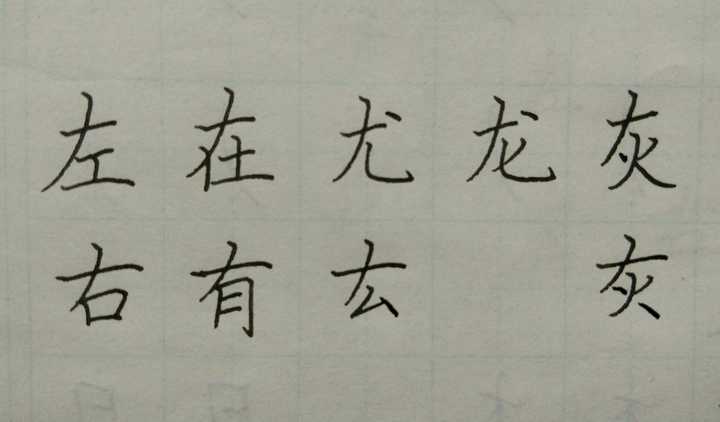 左在尤龙灰
右有厷灰